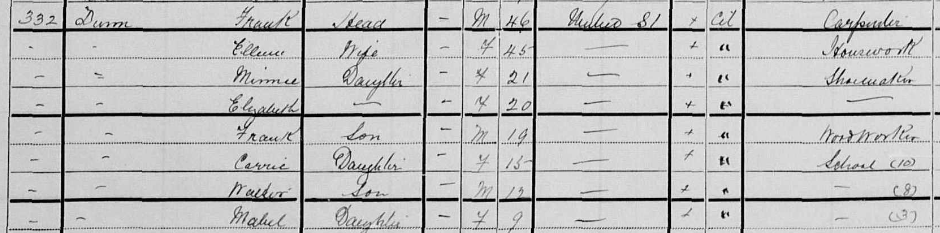 332 Dunn Frank Head – M 46 United St + Cit Carpenter
– – Ellenr Wife – F 45 — + " Housework
– " Minnie Daughter – F 21 — + " Shoemaker
– – Elizabeth — – F 20 — + " —
– " Frank Son – M 19 — + " Wood Worker
– " Carrie Daughter – F 15 — + " School (10)
– " Walter Son – M 12 — + " – (8)
– " Mabel Daughter – F 9 — + " – (3)